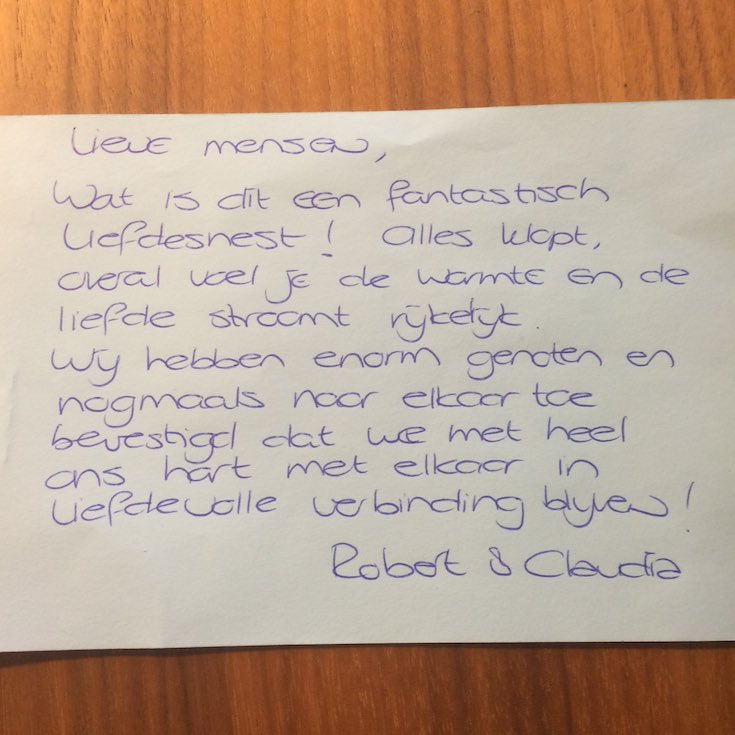 Lieve mensen,
Wat is dit een fantastisch
liefdesnest! Alles klopt,
overal voel je de warmte en de
liefde stroomt rijkelijk.
Wij hebben enorm genoten en
nogmaals naar elkaar toe
bevestigd dat we met heel
ons hart met elkaar in
liefdevolle verbinding blijven!
Robert & Claudia